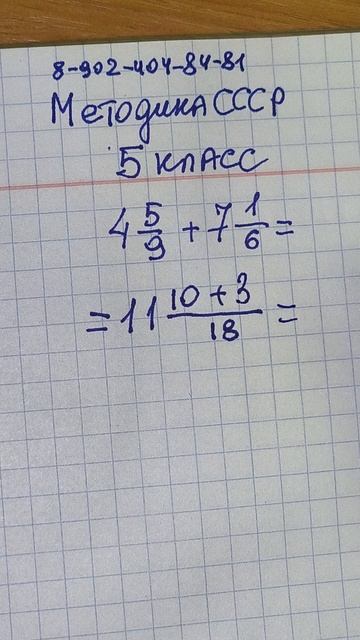 8-902-404-84-81
Методика СССР
5 класс
4 5/9 + 7 1/6 =
= 11 (10 + 3)/18 =